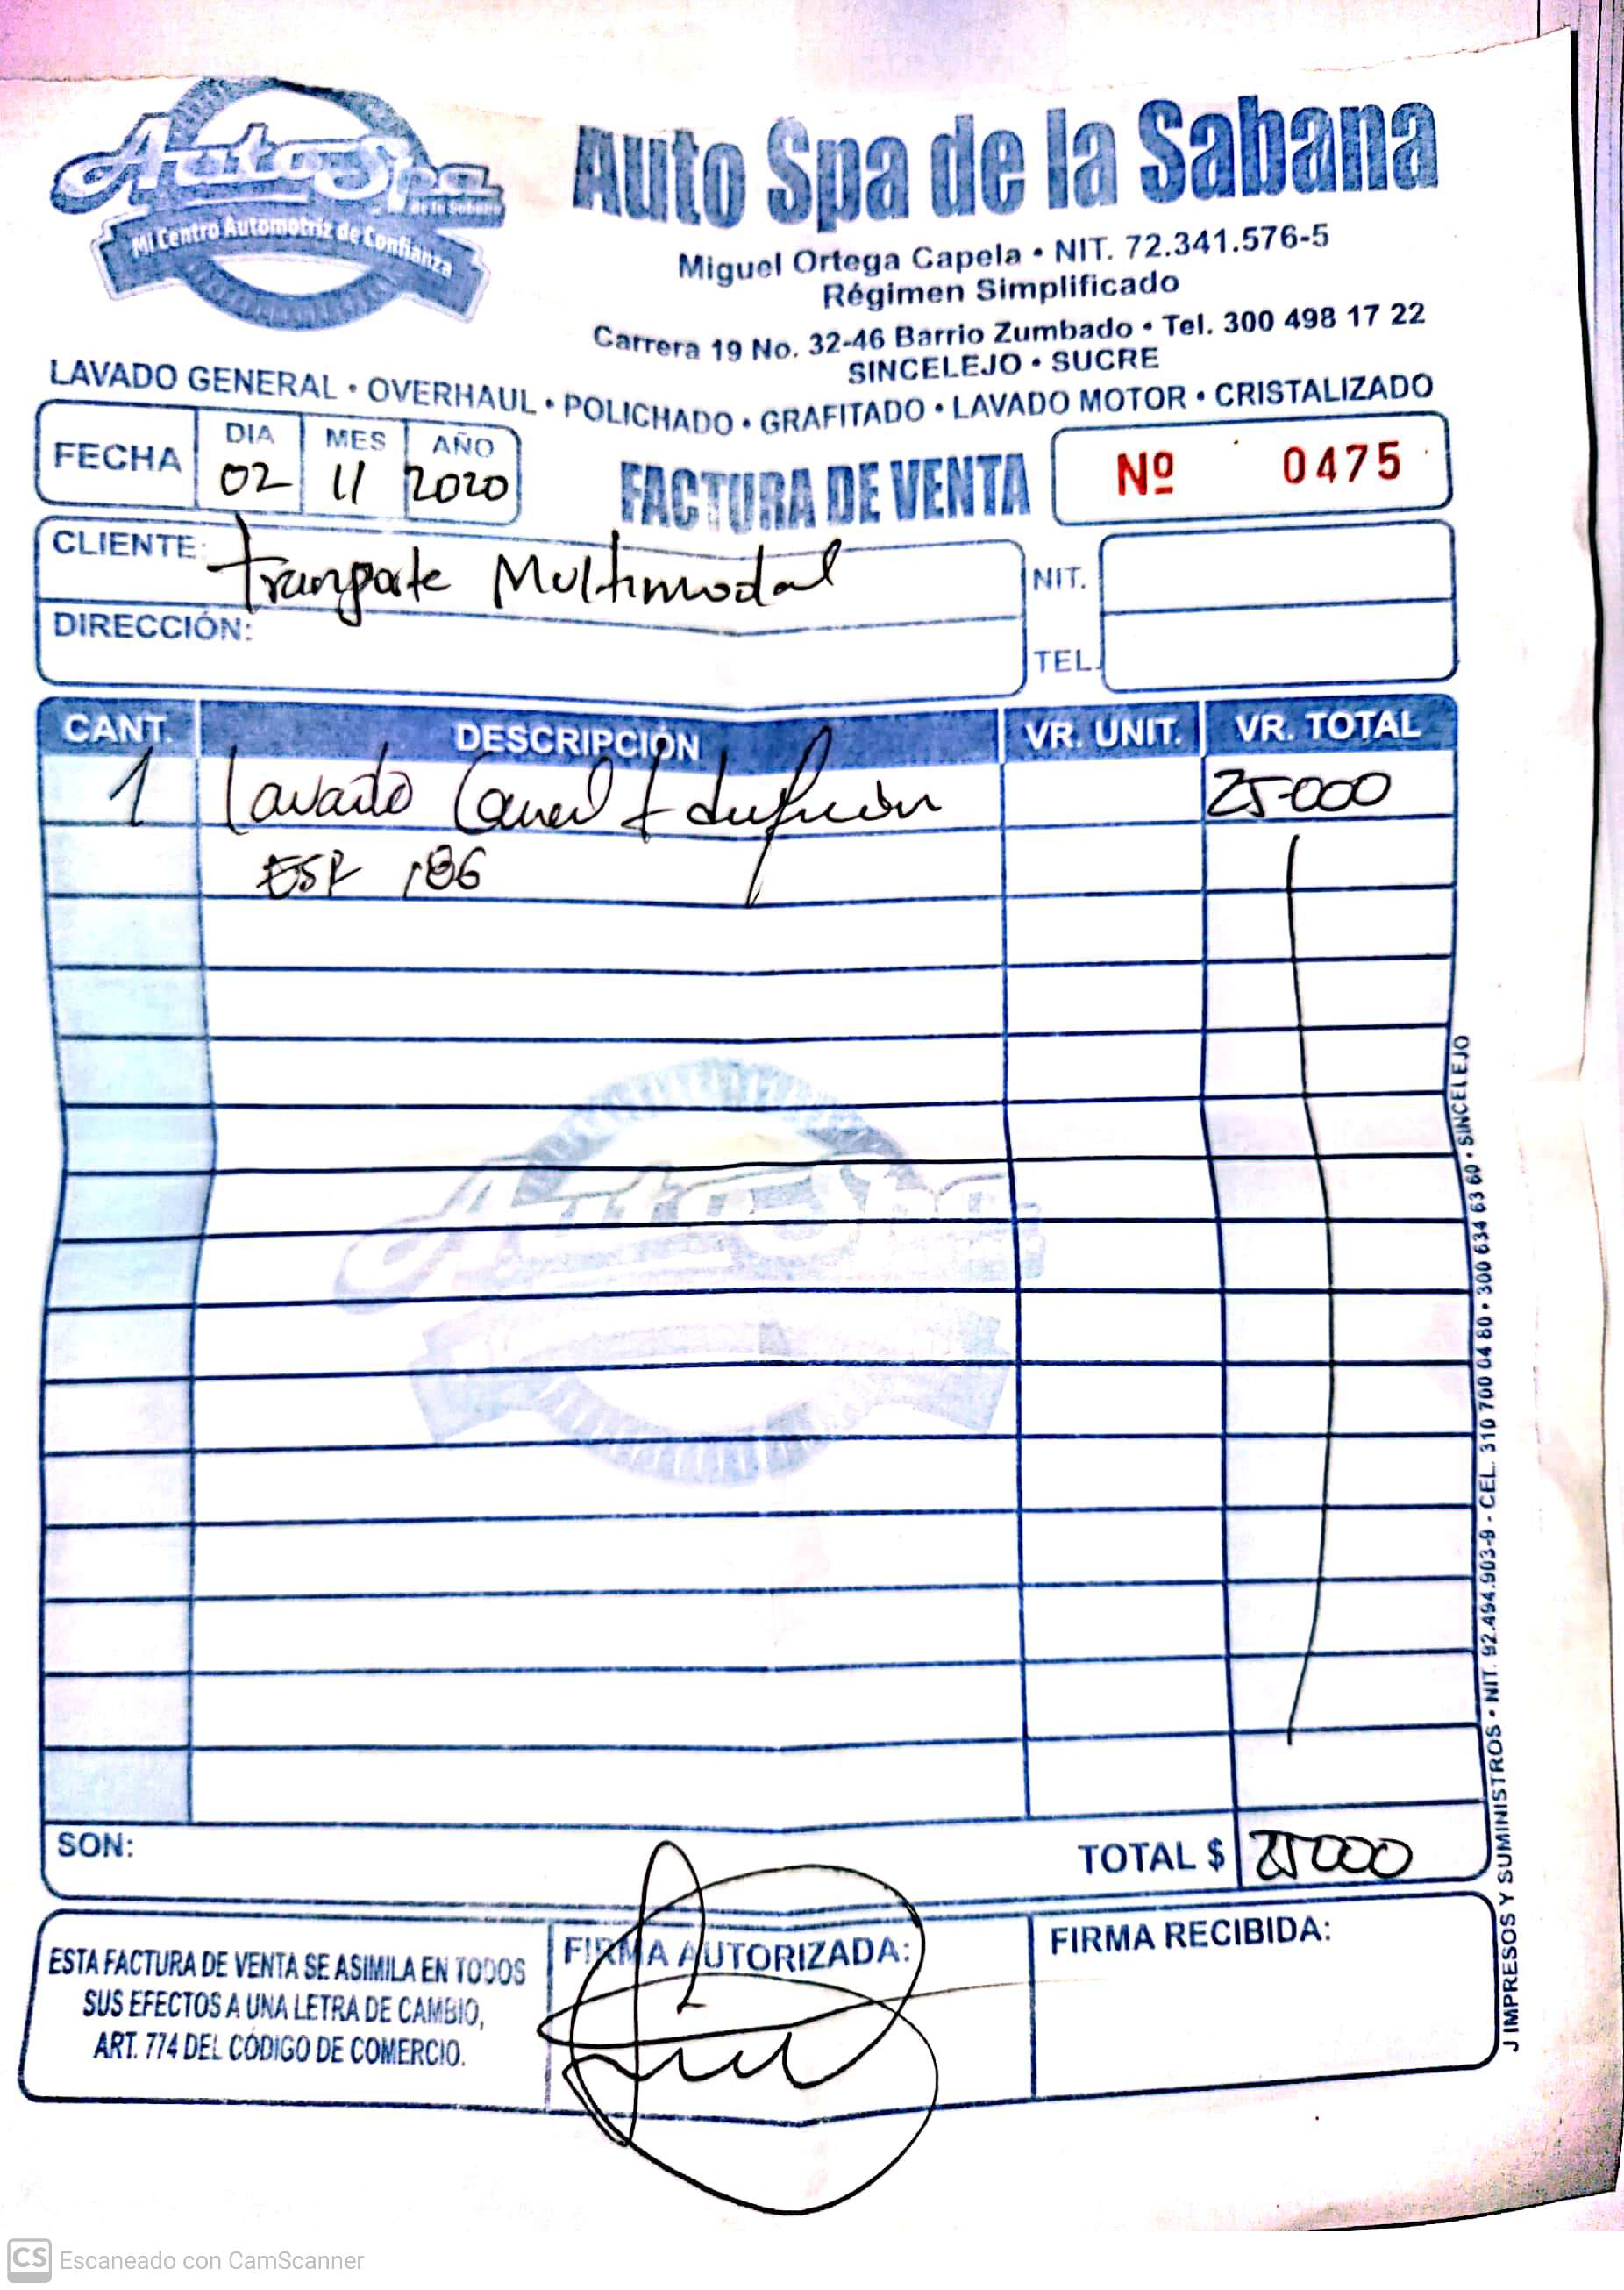 Auto Spa
de la Sabana
Mi Centro Automotriz de Confianza
Auto Spa de la Sabana
Miguel Ortega Capela • NIT. 72.341.576-5
Régimen Simplificado
Carrera 19 No. 32-46 Barrio Zumbado • Tel. 300 498 17 22
SINCELEJO • SUCRE
LAVADO GENERAL • OVERHAUL • POLICHADO • GRAFITADO • LAVADO MOTOR • CRISTALIZADO
FECHA DIA MES AÑO
02 11 2020
FACTURA DE VENTA
Nº 0475
CLIENTE: Tranporte Multimodal
NIT.
DIRECCIÓN:
TEL.
CANT. DESCRIPCIÓN VR. UNIT. VR. TOTAL
1 Lavado 25.000
186
Auto Spa
SON:
TOTAL $ 25000
ESTA FACTURA DE VENTA SE ASIMILA EN TODOS
SUS EFECTOS A UNA LETRA DE CAMBIO,
ART. 774 DEL CÓDIGO DE COMERCIO.
FIRMA AUTORIZADA:
FIRMA RECIBIDA:
J IMPRESOS Y SUMINISTROS • NIT. 92.494.903-9 - CEL. 310 700 04 80 • 300 634 63 60 • SINCELEJO
CS Escaneado con CamScanner